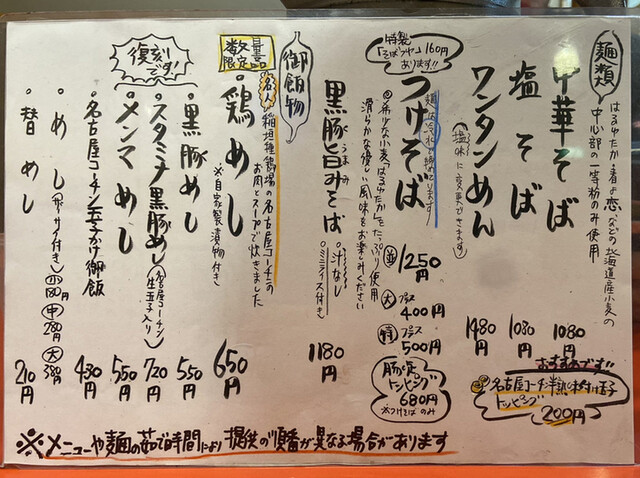 麺類
はるゆたか・春よ恋、などの北海道産小麦の
中心部の一等粉のみ使用
中華そば 1080円
塩そば 1080円
ワンタンめん 1480円
(塩味に変更できます)
おすすめです!!
名古屋コーチン半熟味付け玉子
トッピング
200円
特製
「そばツヤ」160円
あります!!
つけそば
麺は冷水で締めております
◎希少な小麦「はるゆたか」をたっぷり使用
滑らかな優しい風味をお楽しみください
並 1250円
大 プラス400円
特 プラス500円
豚ほぐし
トッピング
680円
※つけそばのみ
黒豚旨みそば 1180円
うま
・汁なし
・ミニライス付き
御飯物
数量
限定品
名人稲垣種鶏場の名古屋コーチンの
お肉とスープで炊きました
鶏めし 650円
※自家製漬物付き
黒豚めし 550円
復刻
です!
スタミナ黒豚めし(名古屋コーチン
生玉子入り) 720円
メンマめし 550円
名古屋コーチン玉子かけ御飯 430円
めし 小180円 中280円 大380円
替めし 210円
※メニューや麺の茹で時間により提供の順番が異なる場合があります